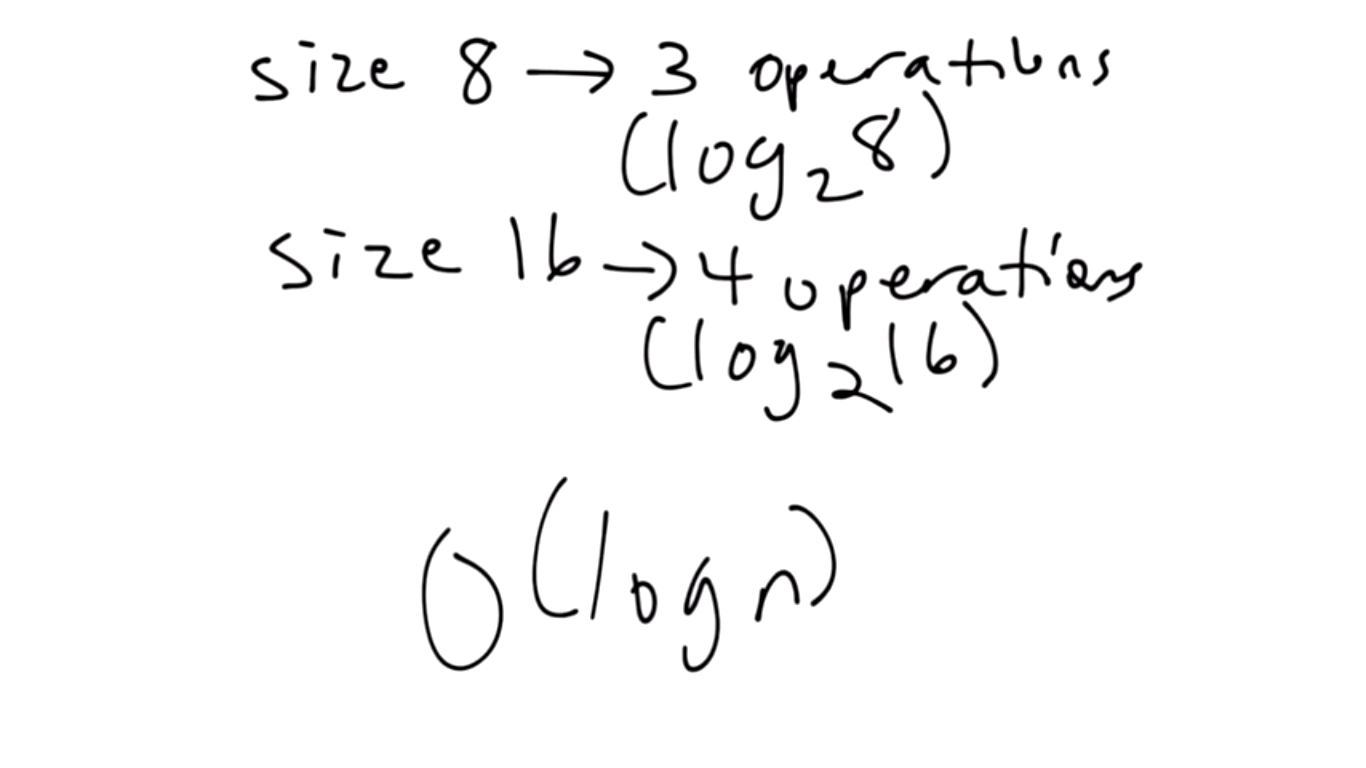 size 8 → 3 operations
(log₂8)
size 16 → 4 operations
(log₂16)
O(log n)